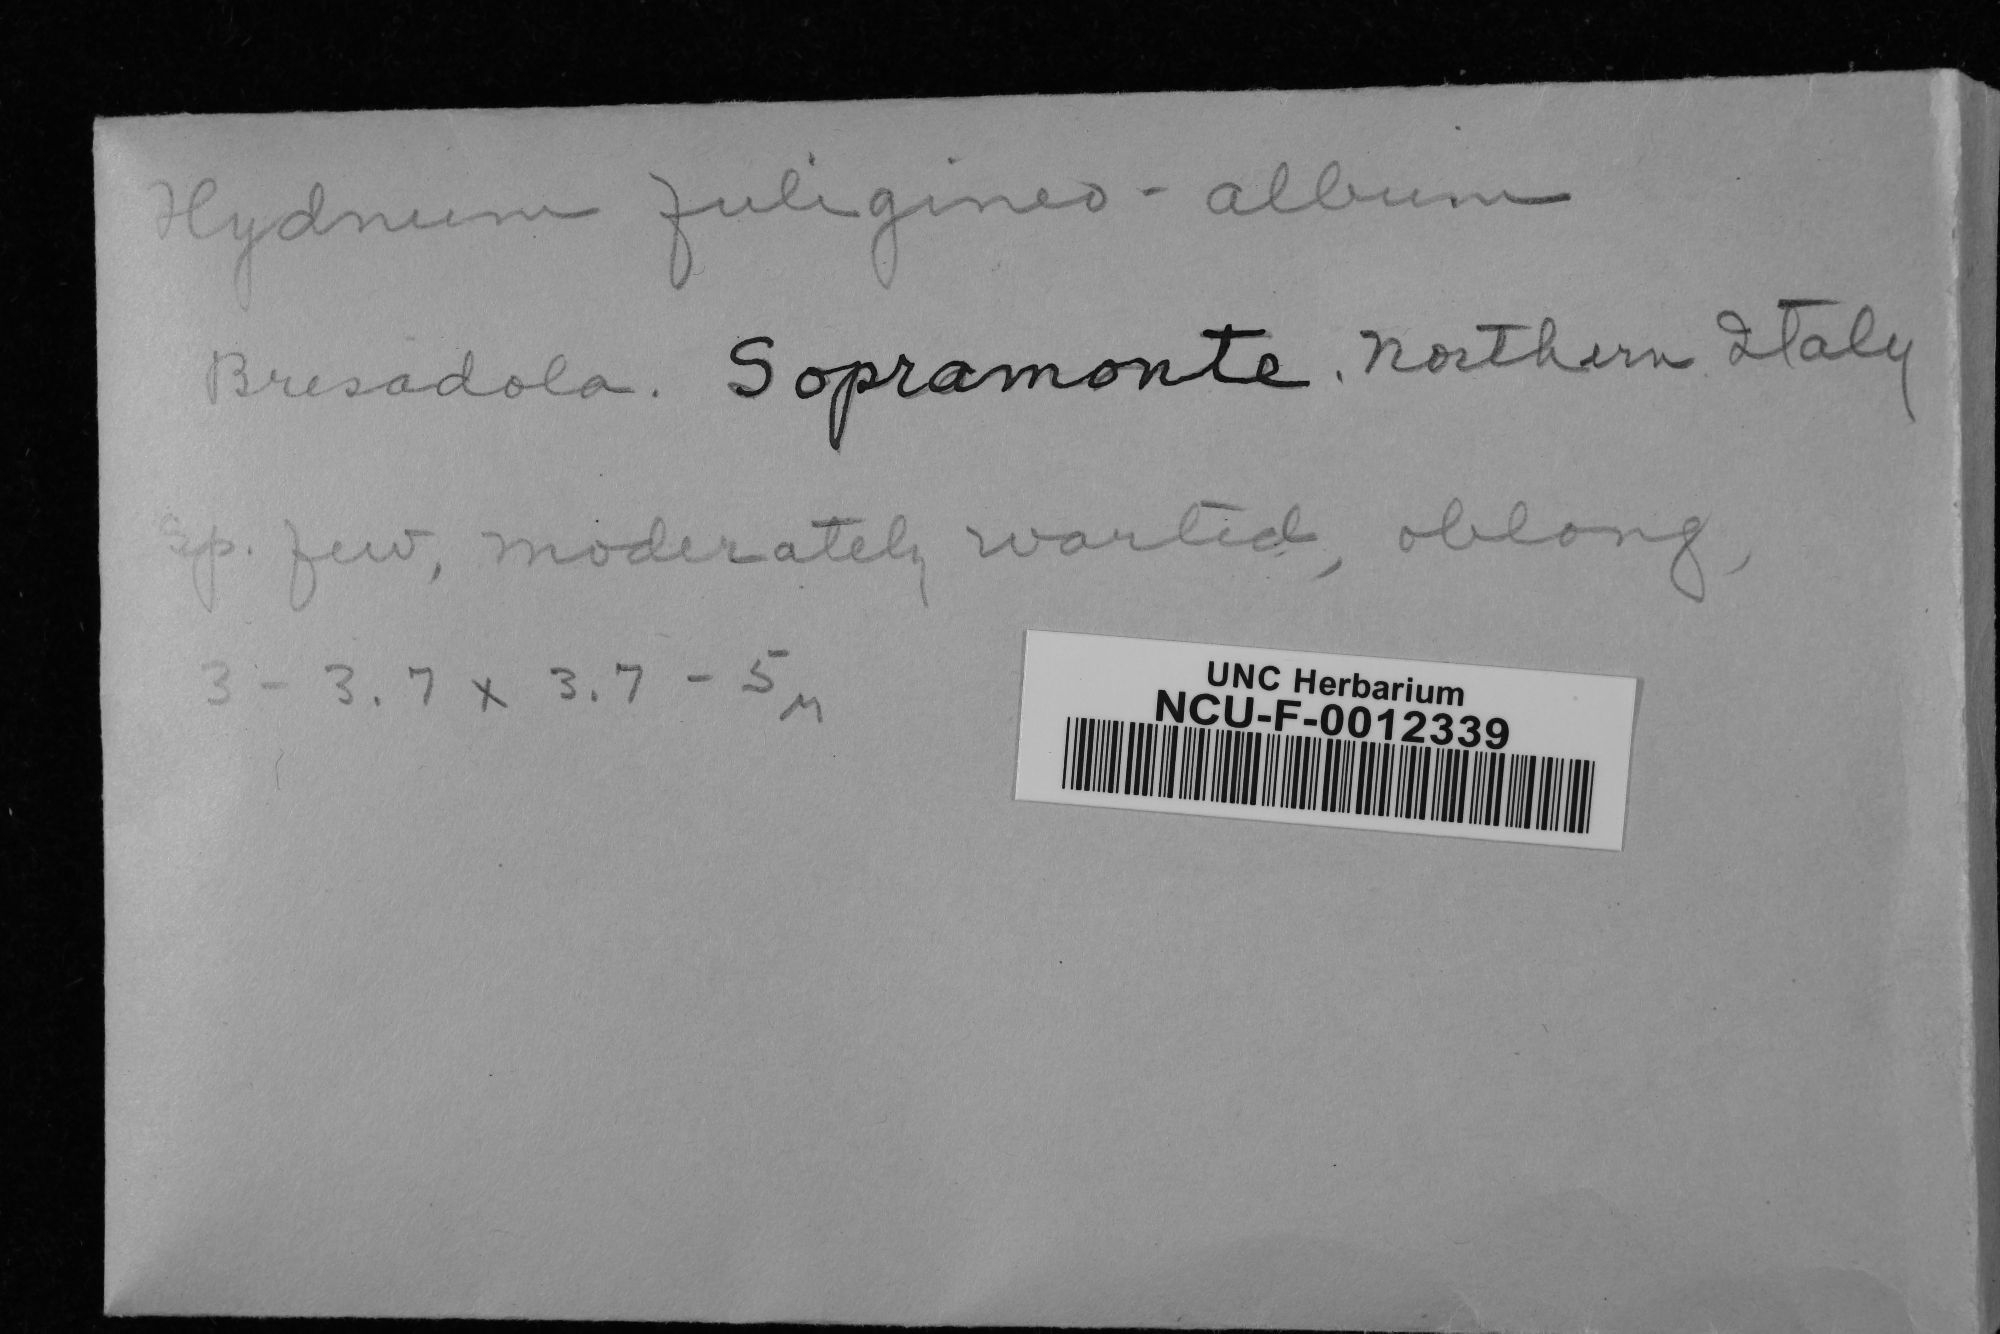 Hydnum fuligineo-album
Bresadola. Sopramonte. Northern Italy
Sp. few, moderately warted, oblong,
3-3.7 x 3.7-5μ
UNC Herbarium
NCU-F-0012339